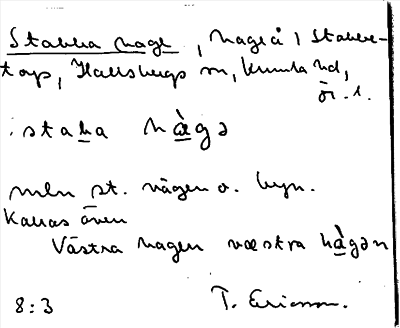 Stabba hage, hage i Stabbe-
torp, Hallsbergs sn, Kumla hd,
Ör. l.
staba hàgə
mln st. vägen o. byn.
Kallas även
Västra hagen væstra hàgən
8:3 T. Ericsson.